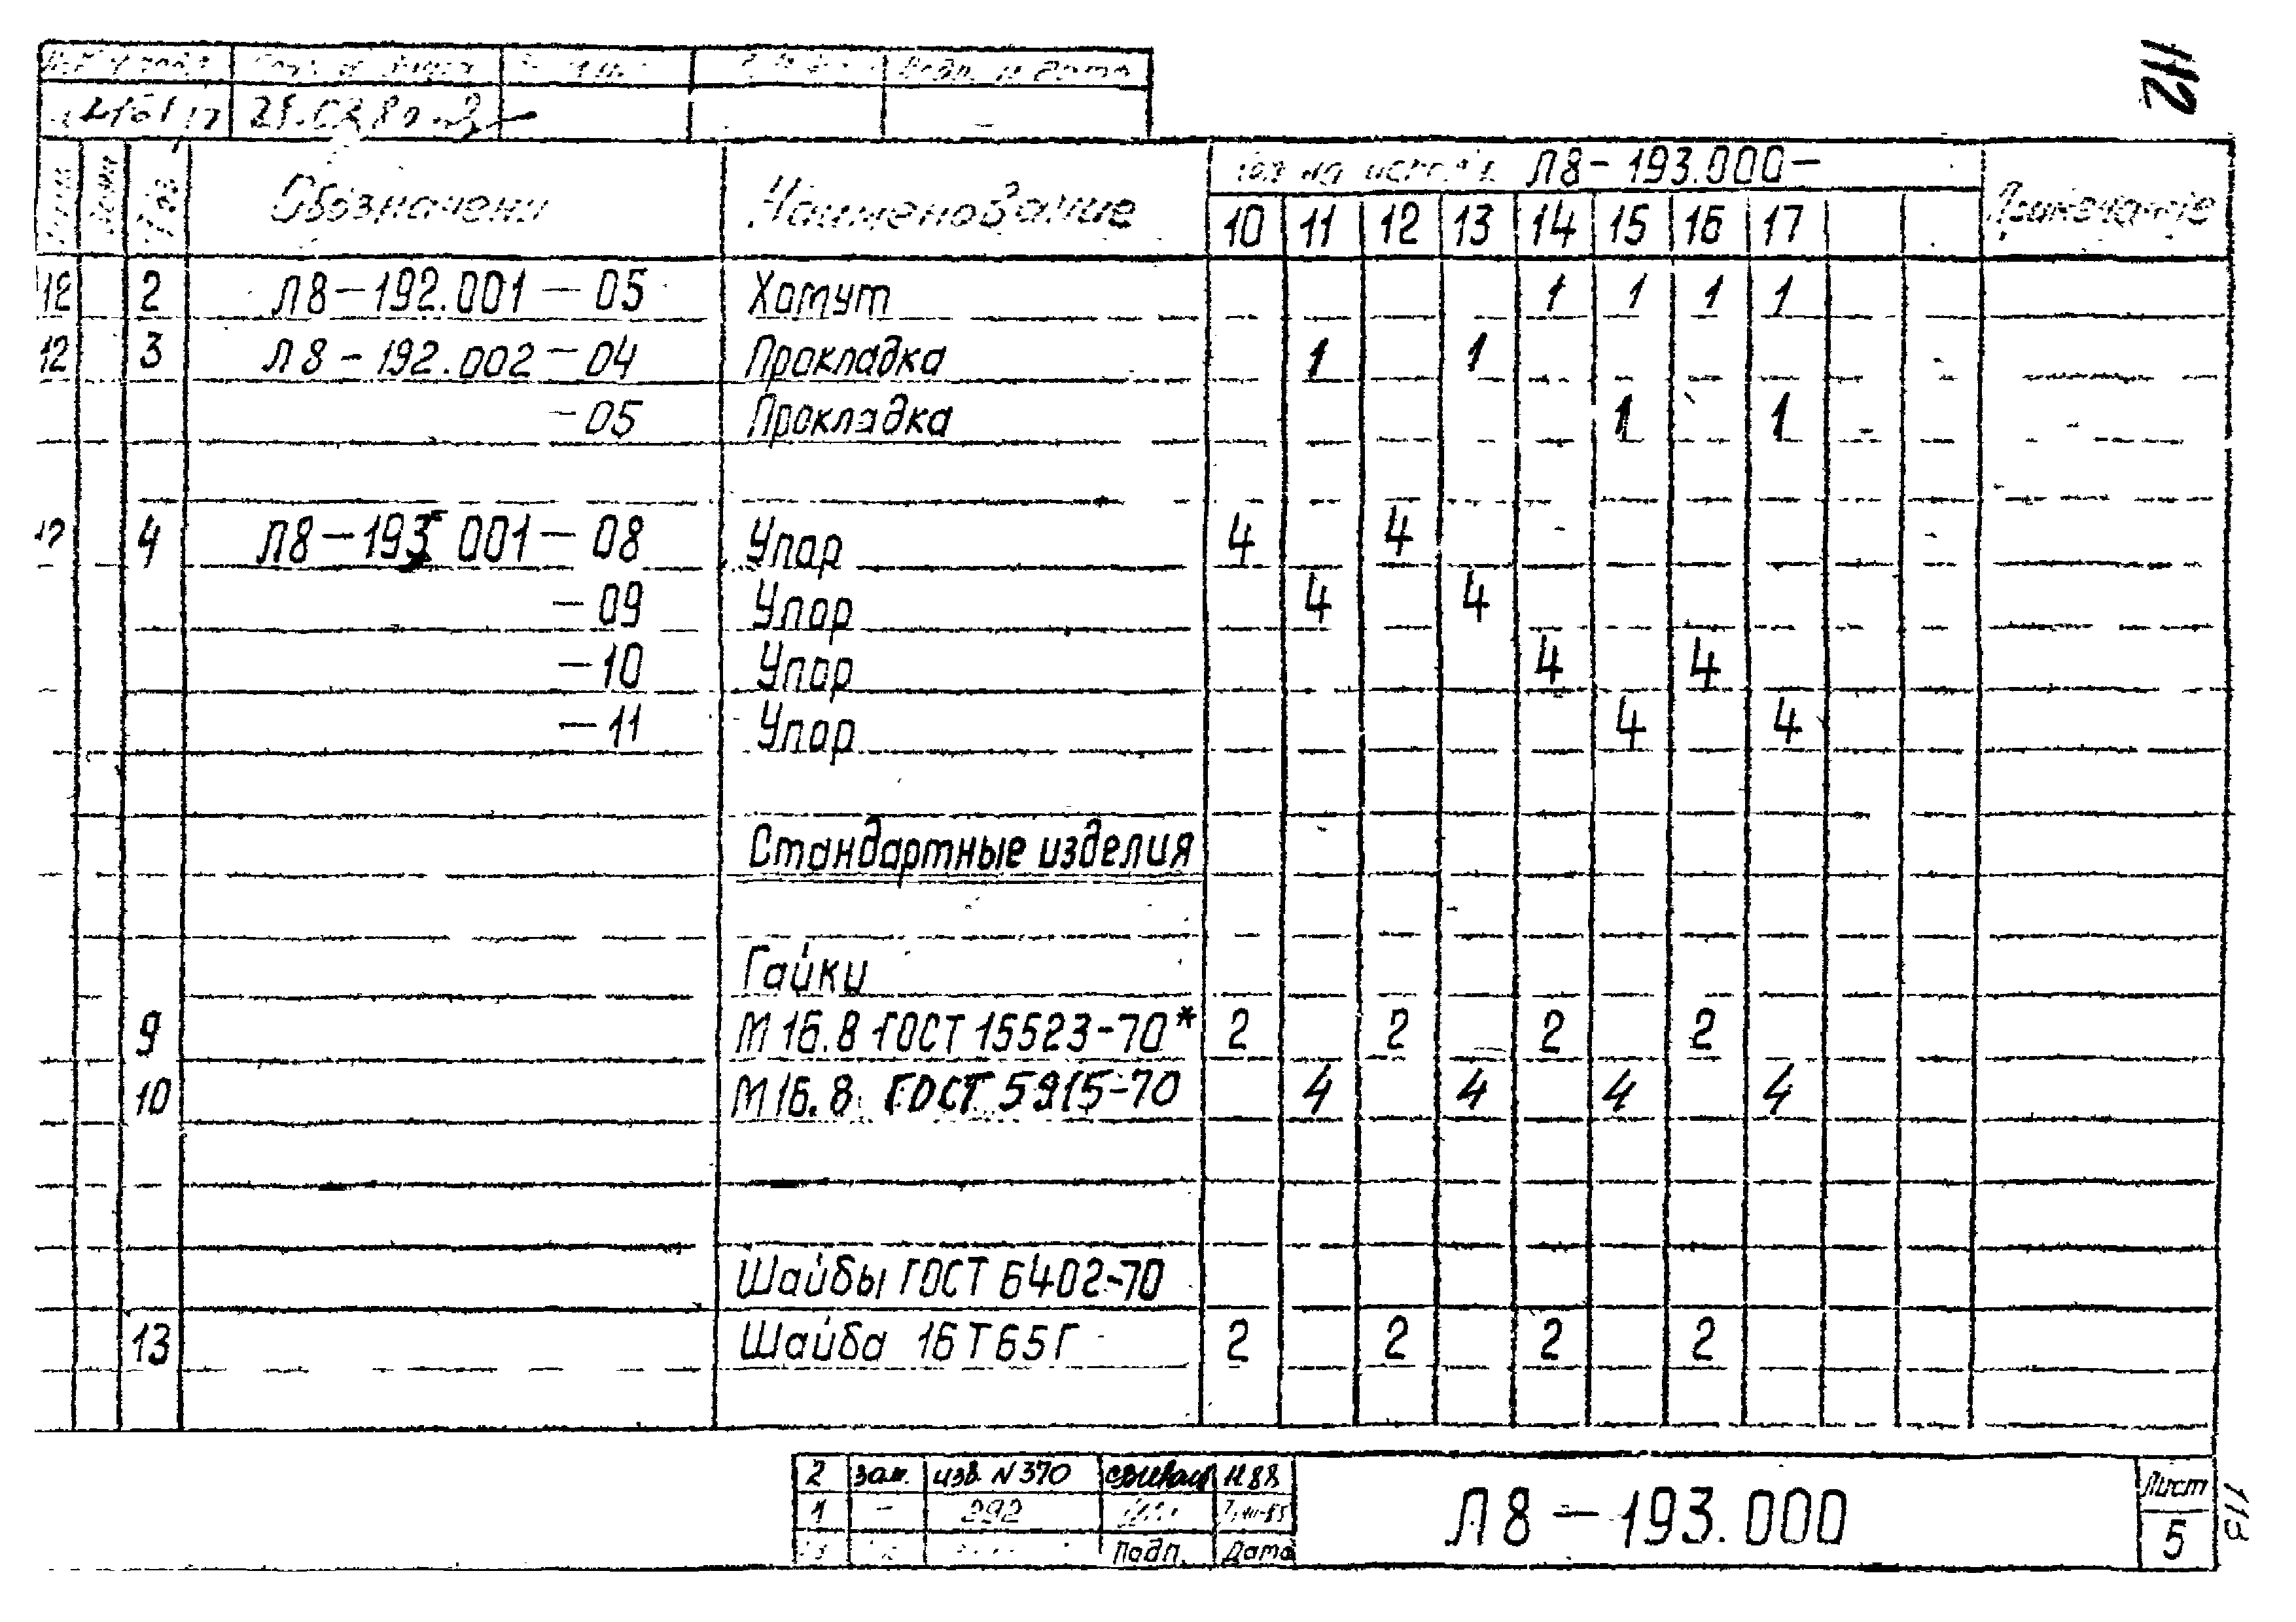 112
Подп. и дата
Обозначени Наименование Л8-193.000- Примечание
10 11 12 13 14 15 16 17
12 2 Л8-192.001-05 Хомут 1 1 1 1
12 3 Л8-192.002-04 Прокладка 1 1
-05 Прокладка 1 1
12 4 Л8-193.001-08 Упор 4 4
-09 Упор 4 4
-10 Упор 4 4
-11 Упор 4 4
Стандартные изделия
Гайки
9 М16.8 ГОСТ 15523-70* 2 2 2 2
10 М16.8 ГОСТ 5915-70 4 4 4 4
Шайбы ГОСТ 6402-70
13 Шайба 16Т65Г 2 2 2 2
2 зам. изв. N370 11.88
1 - 292
Подп. Дата
Л8-193.000
Лист
5
113